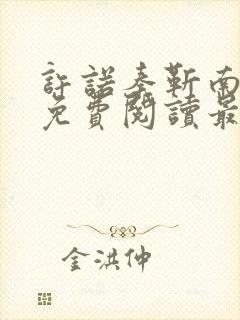 許諾秦靳南
免費閱讀最
金洪仲